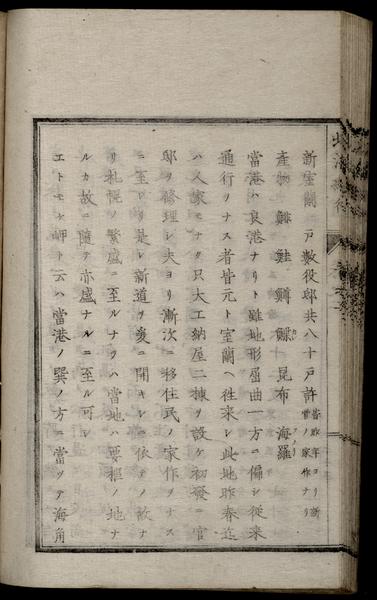 新室蘭 戸數役邸共八十戸許 當昨年ヨリ新
營ノ家作ナリ
產物 鯡 鮭 鱒 鰈 昆布 海羅
當港ハ良港ナリト雖地形屈曲一方ニ偏シ從来
通行ヲナス者皆元ト室蘭ヘ徃来シ此地昨春迄
ハ人家モナク只大工納屋二棟ヲ設ケ初發ニ官
邸ヲ修理シ夫ヨリ漸次ニ移住民ノ家作ヲナス
ニ至レリ是レ新道ヲ爰ニ開キシニ依テノ故ナ
リ札幌ノ繁盛ニ至ルナラハ當地ハ要樞ノ地ナ
ルカ故ニ隨テ亦盛ナルニ至ル可シ
エトモケ岬ト云ハ當港ノ巽ノ方ニ當ツテ海角